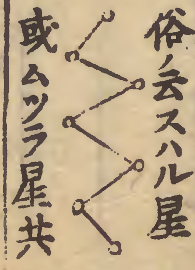 俗ノ云スハル星
或ムツラ星共